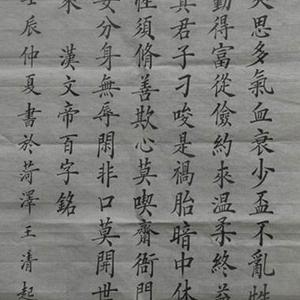 思多氣血衰少盃不亂性
勤得富從儉約來温柔終益
真君子刁唆是禍胎暗中休
性須脩善欺心莫喫齋衙門
安分身無辱閑非口莫開世
來 漢文帝百字銘
壬辰仲夏書於菏澤王清起